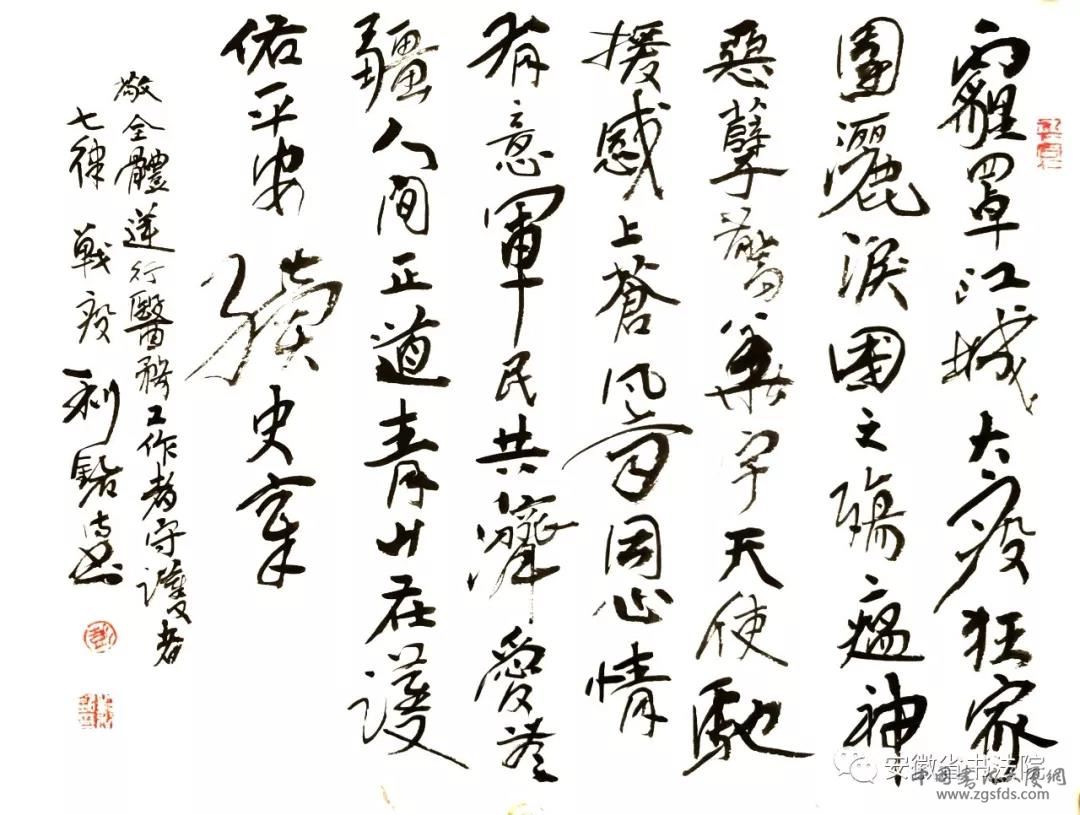 霾罩江城大疫狂家
園灑淚國之殤瘟神
惡孽驚宇天使馳
援感上蒼風同心情
有意軍民共濟愛無
疆人間正道青山在護
佑平安續史章
敬全體逆行醫務工作者守護者
七律 戰疫 利詩書
安徽省书法院
中国書法大廈網
www.zgsfds.com